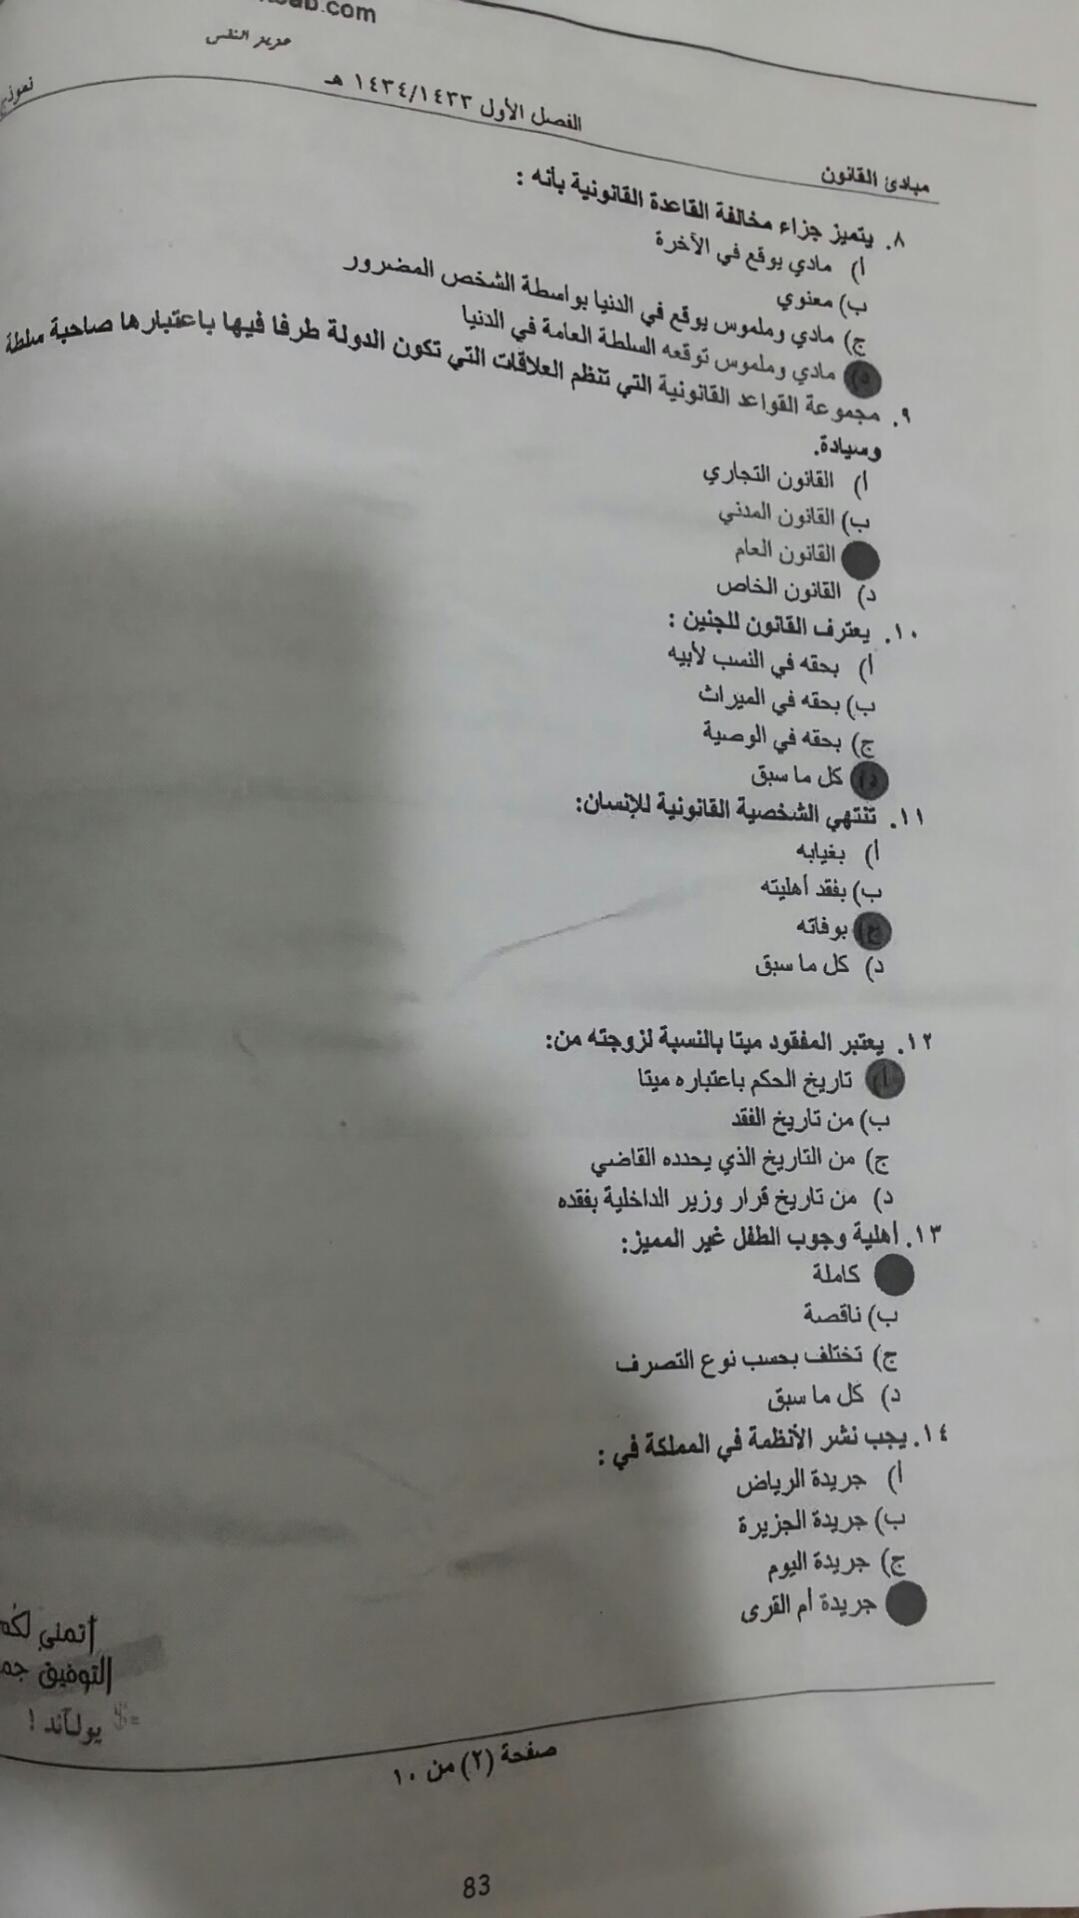 .com
الفصل الأول ١٤٣٤/١٤٣٣ هـ
مبادئ القانون
٨. يتميز جزاء مخالفة القاعدة القانونية بأنه :
أ) مادي يوقع في الآخرة
ب) معنوي
ج) مادي وملموس يوقع في الدنيا بواسطة الشخص المضرور
د) مادي وملموس توقعه السلطة العامة في الدنيا
٩. مجموعة القواعد القانونية التي تنظم العلاقات التي تكون الدولة طرفا فيها باعتبارها صاحبة سلطة
وسيادة.
أ) القانون التجاري
ب) القانون المدني
القانون العام
د) القانون الخاص
١٠. يعترف القانون للجنين :
أ) بحقه في النسب لأبيه
ب) بحقه في الميراث
ج) بحقه في الوصية
د) كل ما سبق
١١. تنتهي الشخصية القانونية للإنسان:
أ) بغيابه
ب) بفقد أهليته
ج) بوفاته
د) كل ما سبق
١٢. يعتبر المفقود ميتا بالنسبة لزوجته من:
أ) تاريخ الحكم باعتباره ميتا
ب) من تاريخ الفقد
ج) من التاريخ الذي يحدده القاضي
د) من تاريخ قرار وزير الداخلية بفقده
١٣. أهلية وجوب الطفل غير المميز:
كاملة
ب) ناقصة
ج) تختلف بحسب نوع التصرف
د) كل ما سبق
١٤. يجب نشر الأنظمة في المملكة في :
أ) جريدة الرياض
ب) جريدة الجزيرة
ج) جريدة اليوم
جريدة أم القرى
أتمنى لكم
التوفيق
صفحة (٢) من ١٠
83